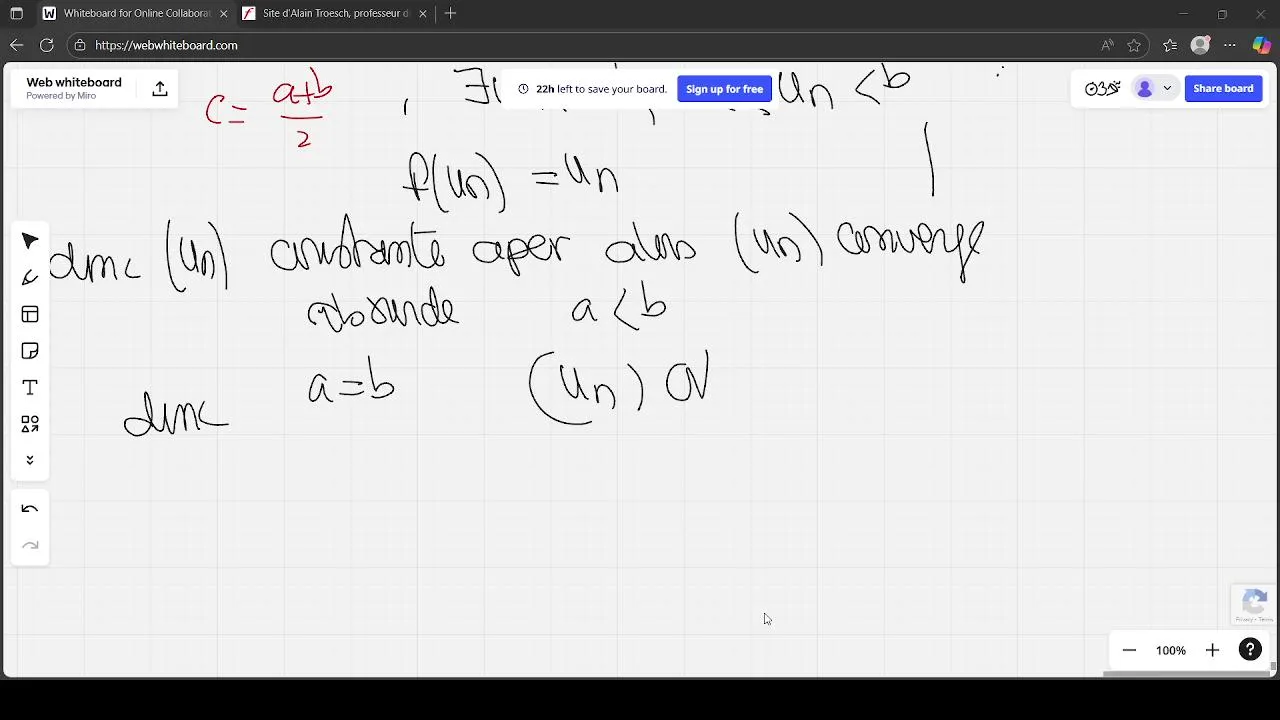 Whiteboard for Online Collaborat
Site d'Alain Troesch, professeur d
https://webwhiteboard.com
Web whiteboard
Powered by Miro
22h left to save your board.
Sign up for free
Share board
c = a+b / 2 , ∃ Un < b
f(Un) = Un
donc (Un) constante aper alors (Un) converge
absurde a < b
donc a = b (Un) CV
100%
Privacy - Terms